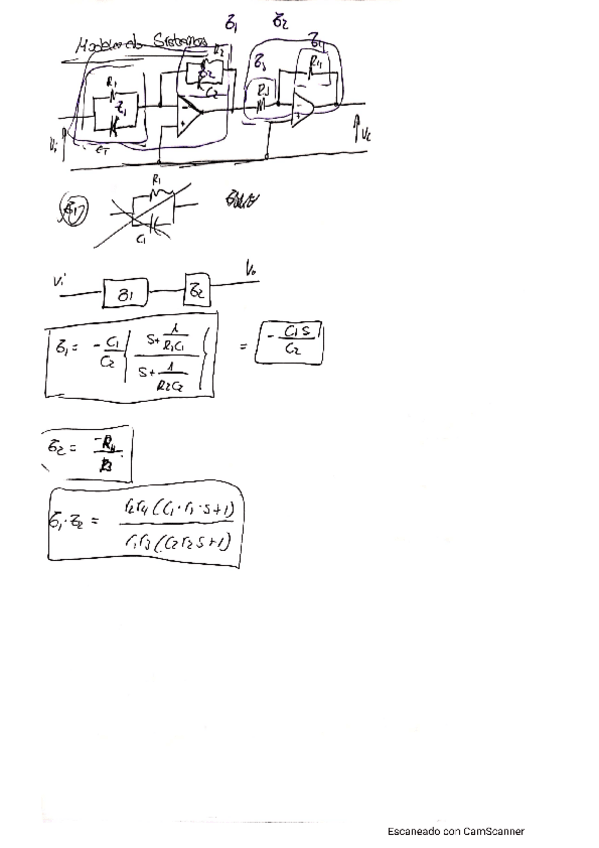 Z1 Z2
Modelado Sistemas
R2
R1 Z1 Z2 C2 Z3 R3 Z4 R4
Vi
Z1 R1
C1
Vi Z1 Z2 Vo
Z1 = -C1/C2 { (S + 1/(R1C1)) / (S + 1/(R2C2)) } = -C1 S / C2
Z2 = -R4/R3
Z1·Z2 = r2r4(C1·r1·s+1) / r1r3(C2r2s+1)
Escaneado con CamScanner